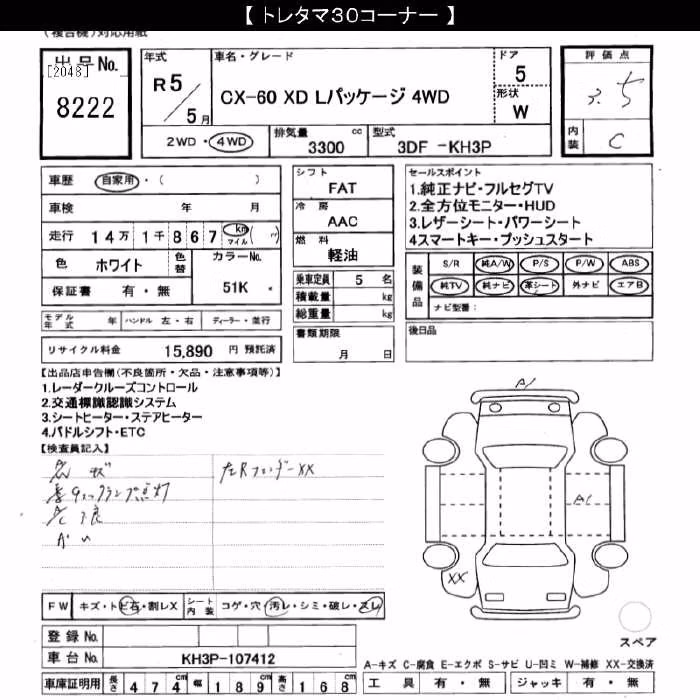 【 トレタマ３０コーナー 】
(複合機)対応用紙
出品No.
[2048]
8222
年式
R5/5月
車名・グレード
CX-60 XD Lパッケージ 4WD
ドア
5
形状
W
評価点
3.5
内装
C
2WD・4WD
排気量
3300 cc
型式
3DF -KH3P
車歴 自家用・( )
車検 年 月
走行 14万1千867 km マイル ( ～)
色 ホワイト 色替
カラーNo. 51K
保証書 有・無
モデル年式 年 ハンドル 左・右 ディーラー・並行
リサイクル料金 15,890 円 預託済
シフト
FAT
冷房
AAC
燃料
軽油
乗車定員 5 名
積載量 kg
総重量 kg
書類期限
月 日
セールスポイント
1.純正ナビ・フルセグTV
2.全方位モニター・HUD
3.レザーシート・パワーシート
4スマートキー・プッシュスタート
装備品
S/R 純A/W P/S P/W ABS
純TV 純ナビ 革シート 外ナビ エアB
ナビ型番:
後日品
【出品店申告欄(不良箇所・欠品・注意事項等)】
1.レーダークルーズコントロール
2.交通標識認識システム
3.シートヒーター・ステアヒーター
4.パドルシフト・ETC
【検査員記入】
左Rフェンダーxx
チェックランプ点灯
A/
A(
XX
FW キズ・トビ石・割レX
シート内装 コゲ・穴・汚レ・シミ・破レ・スレ
登録 No.
車台 No. KH3P-107412
車庫証明用 長さ 474cm 幅 189cm 高さ 168cm
スペア
A-キズ C-腐食 E-エクボ S-サビ U-凹ミ W-補修 XX-交換済
工具 有・無 ジャッキ 有・無